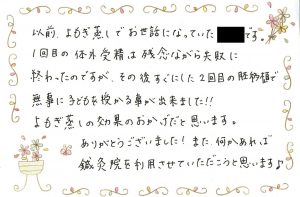 以前、よもぎ蒸しでお世話になっていた です。
1回目の体外受精は残念ながら失敗に
終わったのですが、その後すぐにした2回目の胚移植で
無事に子どもを授かる事が出来ました!!
よもぎ蒸しの効果のおかげだと思います。
ありがとうございました！また、何かあれば
鍼灸院を利用させていただこうと思います♪